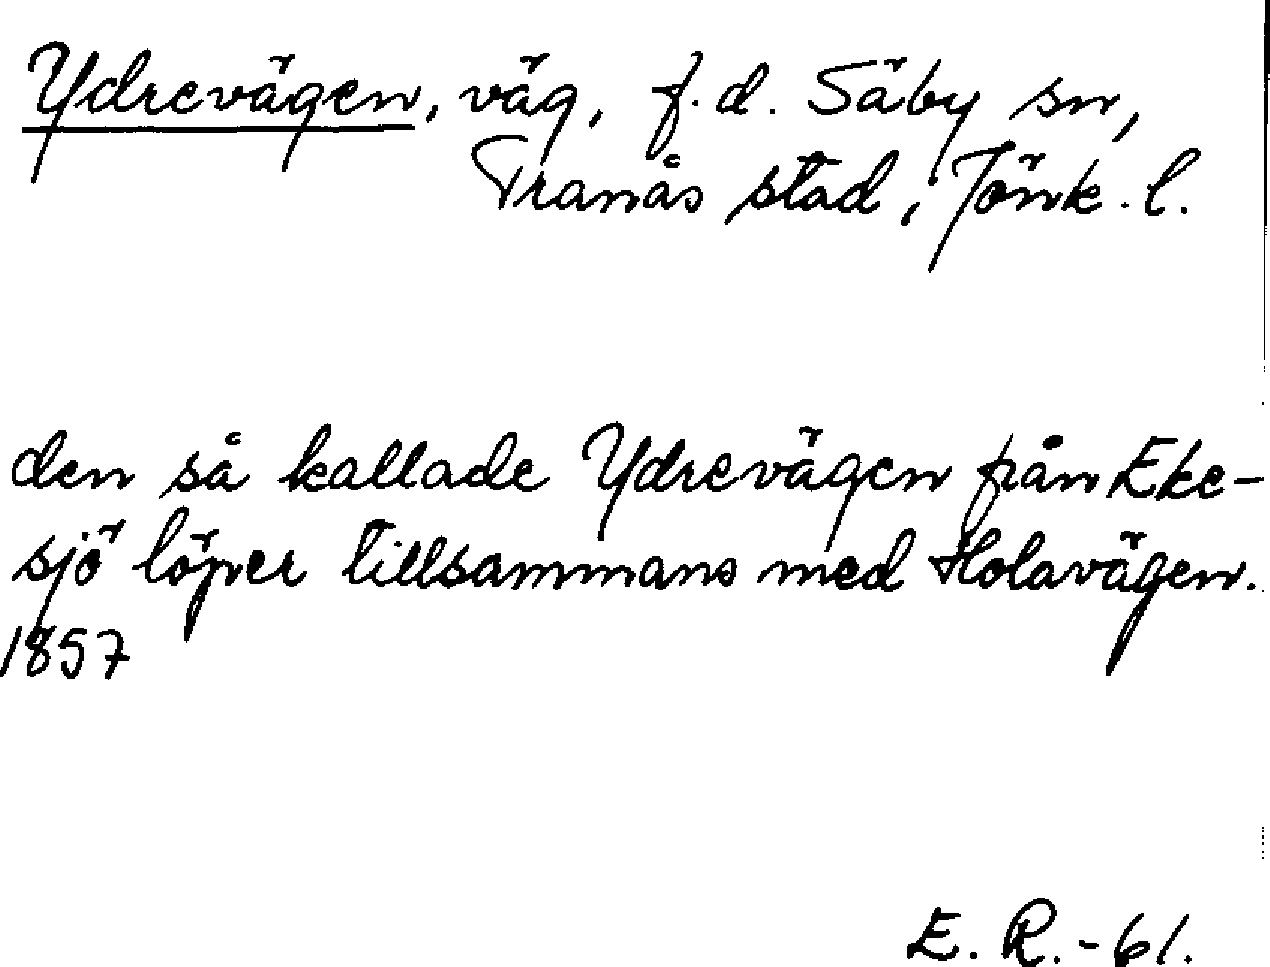 Ydrevägen, väg, f.d. Säby sn,
Tranås stad, Jönk. l.
den så kallade Ydrevägen från Eke-
sjö löper tillsammans med Holavägen.
1857
E. R. -61.